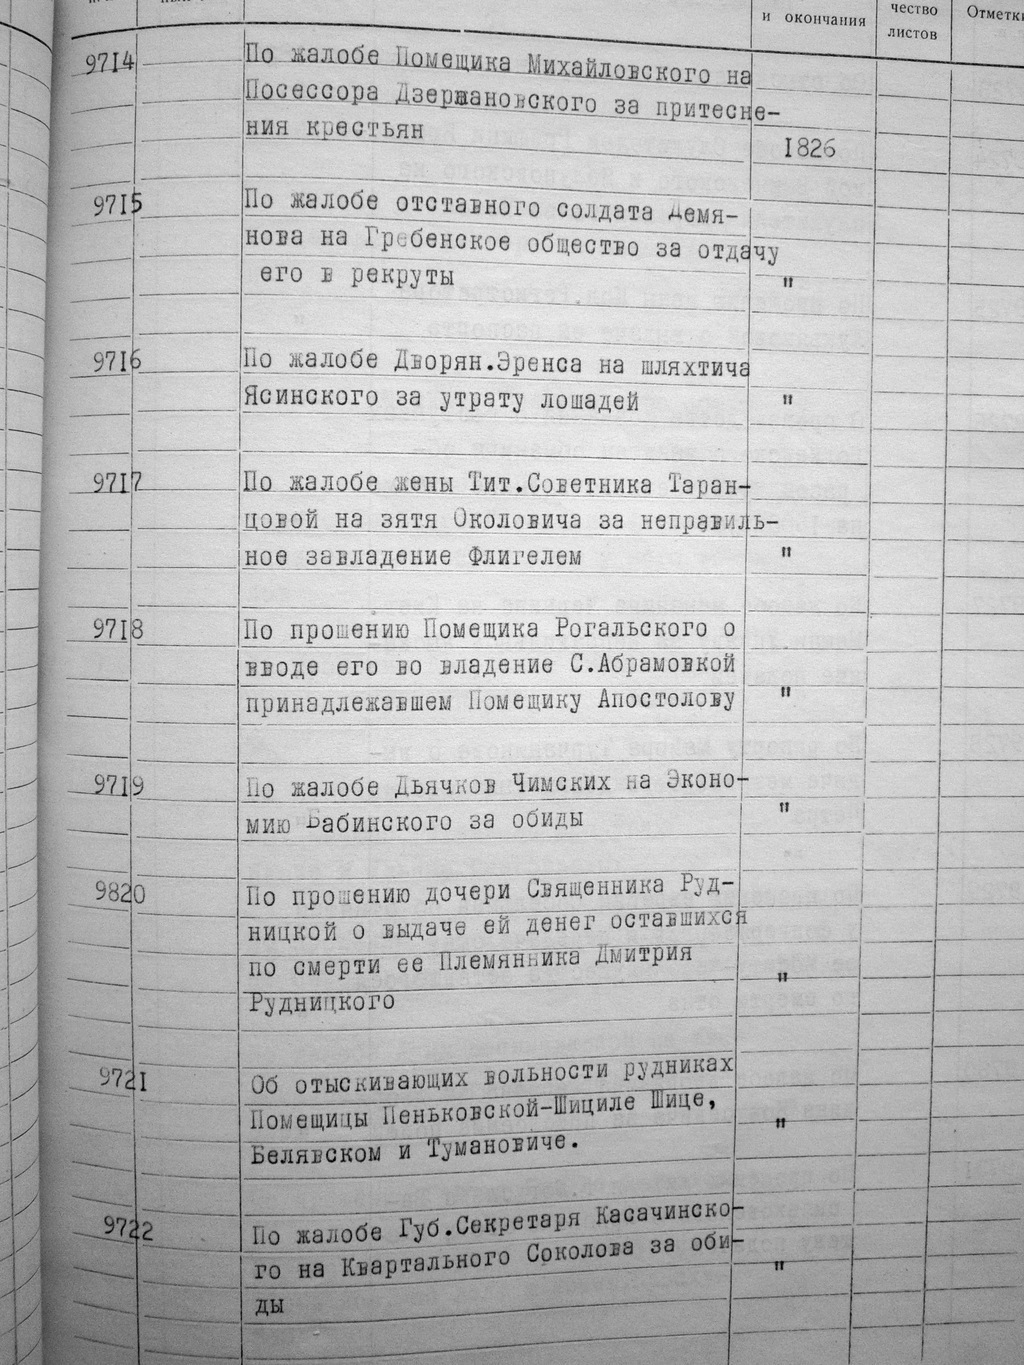 и окончания
чество
листов
Отметки
9714
По жалобе Помещика Михайловского на
Посессора Дзержановского за притесне-
ния крестьян
1826
9715
По жалобе отставного солдата Демя-
нова на Гребенское общество за отдачу
его в рекруты
"
9716
По жалобе Дворян.Эренса на шляхтича
Ясинского за утрату лошадей
"
9717
По жалобе жены Тит.Советника Таран-
цовой на зятя Околовича за неправиль-
ное завладение Флигелем
"
9718
По прошению Помещика Рогальского о
вводе его во владение С.Абрамовкой
принадлежавшем Помещику Апостолову
"
9719
По жалобе Дьячков Чимских на Эконо-
мию Бабинского за обиды
"
9820
По прошению дочери Священника Руд-
ницкой о выдаче ей денег оставшихся
по смерти ее Племянника Дмитрия
Рудницкого
"
9721
Об отыскивающих вольности рудниках
Помещицы Пеньковской-Шициле Шице,
Белявском и Тумановиче.
"
9722
По жалобе Губ.Секретаря Касачинско-
го на Квартального Соколова за оби-
ды
"